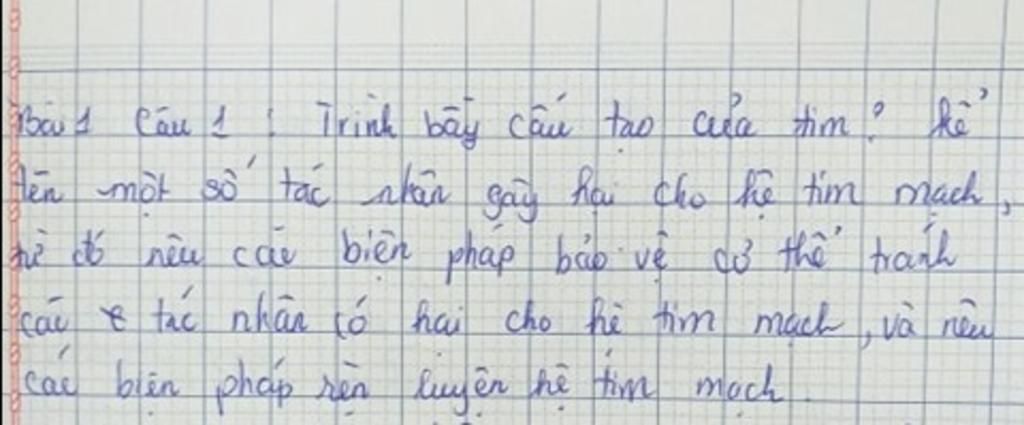 Bài 1 Câu 1 : Trình bày cấu tạo của tim? kể
tên một số tác nhân gây hại cho hệ tim mạch,
từ đó nêu các biện pháp bảo vệ cơ thể tránh
các tác nhân có hại cho hệ tim mạch, và nêu
các biện pháp rèn luyện hệ tim mạch.